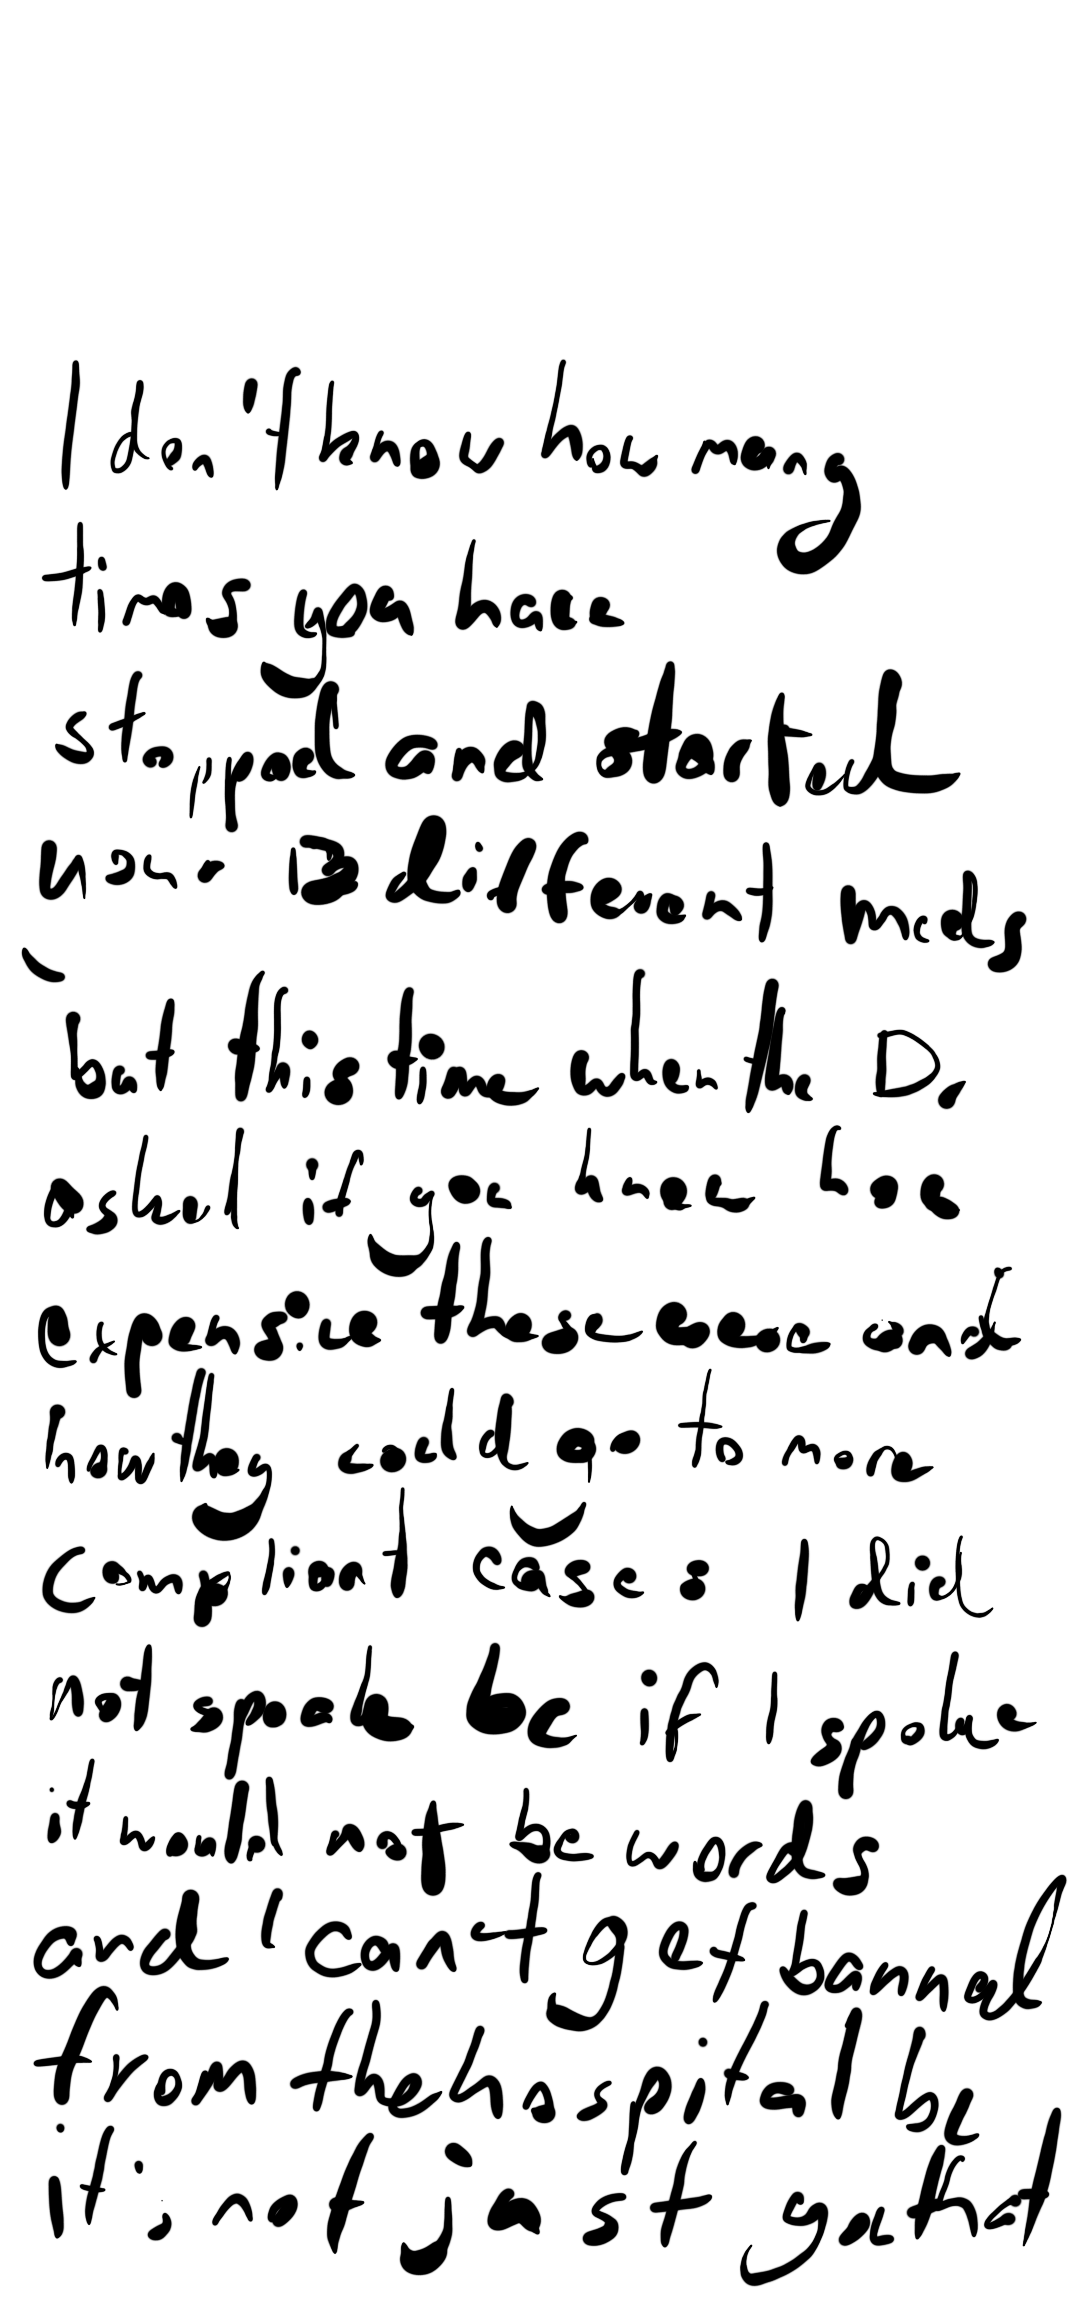 I don't know how many
times you have
stopped and started
your 13 different meds
but this time when the Dr
asked if you knew how
expensive these were and
how they could go to more
compliant cases I did
not speak bc if I spoke
it would not be words
and I can't get banned
from the hospital bc
it's not just you that